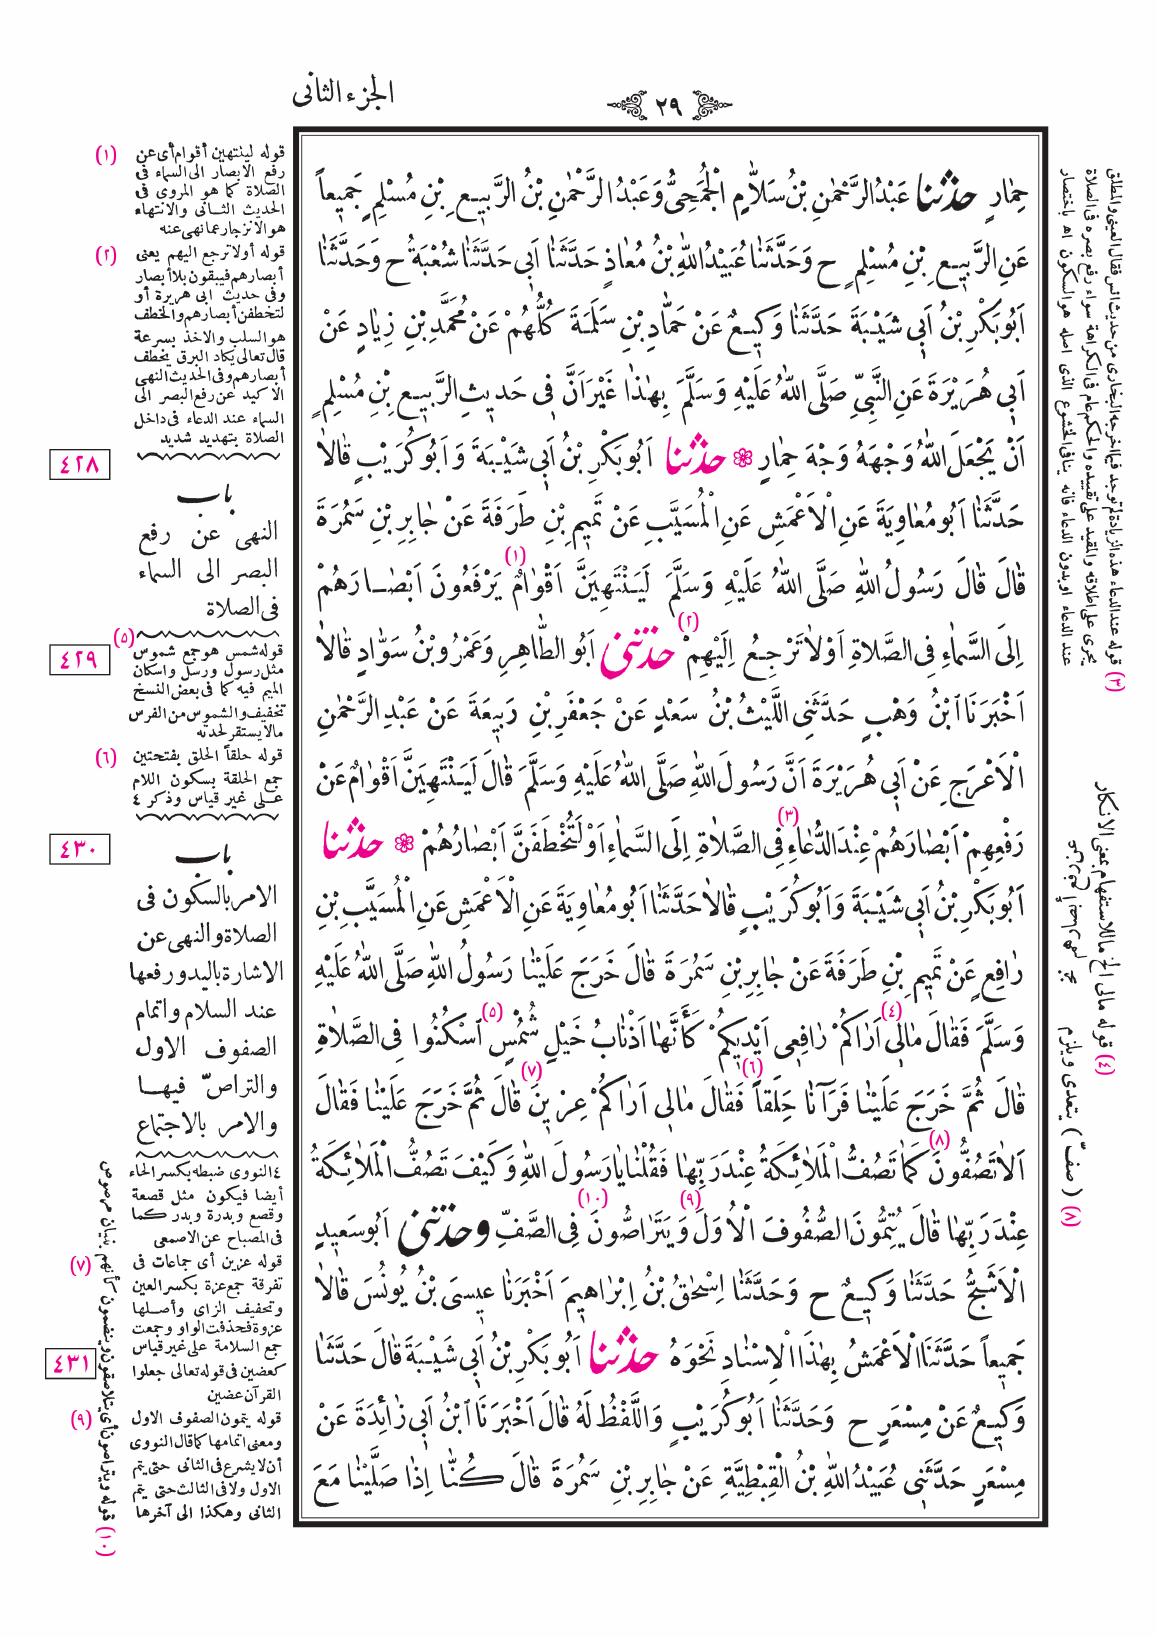 الجزء الثاني
٢٩
حِمٰارٍ حدثنا عَبْدُ الرَّحْمٰنِ بْنُ سَلاّٰمٍ الْجُمَحِىُّ وَعَبْدُ الرَّحْمٰنِ بْنُ الرَّبِيعِ بْنِ مُسْلِمٍ جَمِيعاً
عَنِ الرَّبِيعِ بْنِ مُسْلِمٍ ح وَحَدَّثَنٰا عُبَيْدُ اللّٰهِ بْنُ مُعٰاذٍ حَدَّثَنٰا اَبِي حَدَّثَنٰا شُعْبَةُ ح وَحَدَّثَنٰا
اَبُو بَكْرِ بْنُ اَبِي شَيْبَةَ حَدَّثَنٰا وَكِيعٌ عَنْ حَمّٰادِ بْنِ سَلَمَةَ كُلُّهُمْ عَنْ مُحَمَّدِ بْنِ زِيٰادٍ عَنْ
اَبِي هُرَيْرَةَ عَنِ النَّبِيِّ صَلَّى اللّٰهُ عَلَيْهِ وَسَلَّمَ بِهٰذٰا غَيْرَ اَنَّ فِى حَدِيثِ الرَّبِيعِ بْنِ مُسْلِمٍ
اَنْ يَجْعَلَ اللّٰهُ وَجْهَهُ وَجْهَ حِمٰارٍ حدثنا اَبُو بَكْرِ بْنُ اَبِي شَيْبَةَ وَ اَبُو كُرَيْبٍ قٰالاٰ
حَدَّثَنٰا اَبُو مُعٰاوِيَةَ عَنِ الْاَعْمَشِ عَنِ الْمُسَيَّبِ عَنْ تَمِيمِ بْنِ طَرَفَةَ عَنْ جٰابِرِ بْنِ سَمُرَةَ
قٰالَ قٰالَ رَسُولُ اللّٰهِ صَلَّى اللّٰهُ عَلَيْهِ وَسَلَّمَ لَيَنْتَهِيَنَّ (١) اَقْوٰامٌ يَرْفَعُونَ اَبْصٰارَهُمْ
اِلَى السَّمٰاءِ فِى الصَّلاٰةِ اَوْ لاٰ تَرْجِعُ اِلَيْهِمْ (٢) حدثنى اَبُو الطّٰاهِرِ وَعَمْرُو بْنُ سَوّٰادٍ قٰالاٰ
اَخْبَرَنَا ابْنُ وَهْبٍ حَدَّثَنِى اللَّيْثُ بْنُ سَعْدٍ عَنْ جَعْفَرِ بْنِ رَبِيعَةَ عَنْ عَبْدِ الرَّحْمٰنِ
الْاَعْرَجِ عَنْ اَبِي هُرَيْرَةَ اَنَّ رَسُولَ اللّٰهِ صَلَّى اللّٰهُ عَلَيْهِ وَسَلَّمَ قٰالَ لَيَنْتَهِيَنَّ اَقْوٰامٌ عَنْ
رَفْعِهِمْ اَبْصٰارَهُمْ عِنْدَ الدُّعٰاءِ (٣) فِى الصَّلاٰةِ اِلَى السَّمٰاءِ اَوْ لَتُخْطَفَنَّ اَبْصٰارُهُمْ حدثنا
اَبُو بَكْرِ بْنُ اَبِي شَيْبَةَ وَ اَبُو كُرَيْبٍ قٰالاٰ حَدَّثَنٰا اَبُو مُعٰاوِيَةَ عَنِ الْاَعْمَشِ عَنِ الْمُسَيَّبِ بْنِ
رٰافِعٍ عَنْ تَمِيمِ بْنِ طَرَفَةَ عَنْ جٰابِرِ بْنِ سَمُرَةَ قٰالَ خَرَجَ عَلَيْنٰا رَسُولُ اللّٰهِ صَلَّى اللّٰهُ عَلَيْهِ
وَسَلَّمَ فَقٰالَ مٰالِى (٤) اَرٰاكُمْ رٰافِعِى اَيْدِيكُمْ كَأَنَّهٰا اَذْنٰابُ خَيْلٍ شُمْسٍ (٥) اُسْكُنُوا فِى الصَّلاٰةِ
قٰالَ ثُمَّ خَرَجَ عَلَيْنٰا فَرَآنٰا حِلَقاً (٦) فَقٰالَ مٰالِى اَرٰاكُمْ عِزِينَ (٧) قٰالَ ثُمَّ خَرَجَ عَلَيْنٰا فَقٰالَ
اَلاٰ تَصُفُّونَ (٨) كَمٰا تَصُفُّ الْمَلاٰئِكَةُ عِنْدَ رَبِّهٰا فَقُلْنٰا يٰا رَسُولَ اللّٰهِ وَكَيْفَ تَصُفُّ الْمَلاٰئِكَةُ
عِنْدَ رَبِّهٰا قٰالَ يُتِمُّونَ الصُّفُوفَ الْاُوَلَ (٩) وَيَتَرٰاصُّونَ (١٠) فِى الصَّفِّ وحدثنى اَبُو سَعِيدٍ
الْاَشَجُّ حَدَّثَنٰا وَكِيعٌ ح وَحَدَّثَنٰا اِسْحٰقُ بْنُ اِبْرٰاهِيمَ اَخْبَرَنٰا عِيسَى بْنُ يُونُسَ قٰالاٰ
جَمِيعاً حَدَّثَنَا الْاَعْمَشُ بِهٰذَا الْاِسْنٰادِ نَحْوَهُ حدثنا اَبُو بَكْرِ بْنُ اَبِي شَيْبَةَ قٰالَ حَدَّثَنٰا
وَكِيعٌ عَنْ مِسْعَرٍ ح وَحَدَّثَنٰا اَبُو كُرَيْبٍ وَاللَّفْظُ لَهُ قٰالَ اَخْبَرَنَا ابْنُ اَبِي زٰائِدَةَ عَنْ
مِسْعَرٍ حَدَّثَنِى عُبَيْدُ اللّٰهِ بْنُ الْقِبْطِيَّةِ عَنْ جٰابِرِ بْنِ سَمُرَةَ قٰالَ كُنّٰا اِذٰا صَلَّيْنٰا مَعَ
(١) قوله لينتهين أقوام أى عن
رفع الابصار الى السماء فى
الصلاة كما هو المروى فى
الحديث الثانى والانتهاء
هو الانزجار عما نهى عنه
(٢) قوله أولا ترجع اليهم يعنى
أبصارهم فيبقون بلا أبصار
وفى حديث ابى هريرة أو
لتخطفن أبصارهم والخطف
هو السلب والاخذ بسرعة
قال تعالى يكاد البرق يخطف
أبصارهم وفى الحديث النهى
الاكيد عن رفع البصر الى
السماء عند الدعاء فى داخل
الصلاة بتهديد شديد
٤٢٨
باب
النهى عن رفع
البصر الى السماء
فى الصلاة
٤٢٩
(٥) قوله شمس هو جمع شموس
مثل رسول ورسل واسكان
الميم فيه كما فى بعض النسخ
تخفيف والشموس من الفرس
مالا يستقر لحدته
(٦) قوله حلقاً الحلق بفتحتين
جمع الحلقة بسكون اللام
على غير قياس وذكر ٤
٤٣٠
باب
الامر بالسكون فى
الصلاة والنهى عن
الاشارة باليد ورفعها
عند السلام واتمام
الصفوف الاول
والتراصّ فيها
والامر بالاجتماع
٤ النووى ضبطه بكسر الحاء
أيضا فيكون مثل قصعة
وقصع وبدرة وبدر كما
فى المصباح عن الاصمعى
(٧) قوله عزين أى جماعات فى
تفرقة جمع عزة بكسر العين
وتخفيف الزاى وأصلها
عزوة فحذفت الواو وجمعت
جمع السلامة على غير قياس
كعضين فى قوله تعالى جعلوا
القرآن عضين
٤٣١
(٩) قوله يتمون الصفوف الاول
ومعنى اتمامها كما قال النووى
أن لا يشرع فى الثانى حتى يتم
الاول ولا فى الثالث حتى يتم
الثانى وهكذا الى آخرها
(١٠) قوله ويتراصون أى يتلاصقون وينضمون كأنهم بنيان مرصوص
(٣) قوله عند الدعاء هذه الزيادة لم توجد فيما اخرجه البخارى من حديث انس فقال العينى والمطلق
يجرى على اطلاقه والمقيد على تقييده والحكم عام فى الكراهة سواء رفع بصره فى الصلاة
عند الدعاء او بدون الدعاء فانه ينافى الخشوع الذى اصله هو السكون اه باختصار
(٤) قوله مالى الخ ما للاستفهام بمعنى الانكار
(٨) ( صفّ ) يتعدى ويلزم